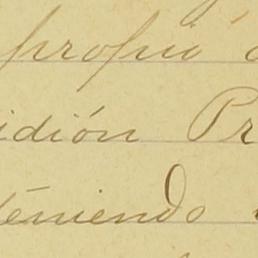 propio
idión Pr
teniendo